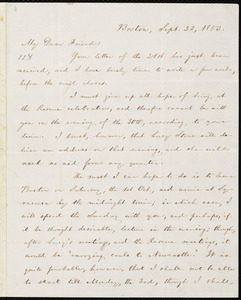 Boston, Sept. 22, 1853.
My Dear Friend:
Your letter of the 20th has just been
received, and I have barely time to write a few words,
before the mail closes.
I must give up all hopes of being at
the Rescue celebration, and therefore cannot be with
you on the evening of the 30th, according to your
desire. I trust, however, that Lucy Stone will de-
liver an address on that evening, and she will
need no aid from any quarter.
The most I can hope to do is to leave
Boston on Saturday, the 1st Oct., and arrive at Sy-
racuse by the midnight train, in which case, I
will spend the Sunday with you, and perhaps, if
it be thought desirable, lecture in the evening; though,
after Lucy's meeting, and the Rescue meetings, it
would be "carrying coals to Newcastle." It is
quite probable, however, that I shall not be able
to start till Monday, the 3rd, though I shall,